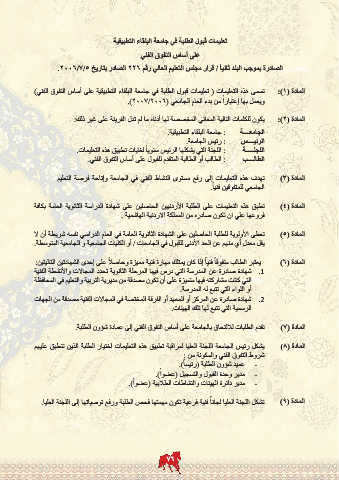 تعليمات قبول الطلبة في جامعة البلقاء التطبيقية
على أساس التفوق الفني
الصادرة بموجب البند ثانياً / قرار مجلس التعليم العالي رقم ٢٢٦ الصادر بتاريخ ٢٠٠٦/٧/٥.
المادة (١): تسمى هذه التعليمات ( تعليمات قبول الطلبة في جامعة البلقاء التطبيقية على أساس التفوق الفني)
ويعمل بها إعتباراً من بدء العام الجامعي (٢٠٠٧/٢٠٠٦).
المادة (٢): يكون للكلمات التالية المعاني المخصصة لها أدناه ما لم تدل القرينة على غير ذلك:
الجامعـــة : جامعة البلقاء التطبيقية.
الرئيـــس : رئيس الجامعة.
اللجنـــة : اللجنة التي يشكلها الرئيس سنوياً لغايات تطبيق هذه التعليمات.
الطالـــب : الطالب أو الطالبة المتقدم للقبول على أساس التفوق الفني.
المادة (٣): تهدف هذه التعليمات إلى رفع مستوى النشاط الفني في الجامعة وإتاحة فرصة التعليم
الجامعي للمتفوقين فنياً.
المادة (٤): تطبق هذه التعليمات على الطلبة الأردنيين الحاصلين على شهادة الدراسة الثانوية العامة بكافة
فروعها على ان تكون صادره من المملكة الاردنية الهاشمية .
المادة (٥): تعطى الأولوية للطلبة الحاصلين على الشهادة الثانوية العامة في العام الدراسي نفسه شريطة أن لا
يقل معدل أي منهم عن الحد الأدنى للقبول في الجامعات / أو الكليات الجامعية و الجامعية المتوسطة.
المادة (٦): يعتبر الطالب متفوقاً فنياً إذا كان يمتلك مهارة فنية مميزة وحاصلاً على إحدى الشهادتين التاليتين:
1. شهادة صادرة عن المدرسة التي درس فيها المرحلة الثانوية تحدد المجالات والأنشطة الفنية
التي كانت مشاركته فيها متميزة على أن تكون مصدقة من مديرية التربية والتعليم في المحافظة
أو اللواء التي تتبع له المدرسة.
2. شهادة صادرة عن المركز أو المعهد أو الفرقة المختصة في المجالات الفنية مصدقة من الجهات
الرسمية التي تتبع لها تلك الهيئات.
المادة (٧): تقدم الطلبات للالتحاق بالجامعة على أساس التفوق الفني إلى عمادة شؤون الطلبة.
المادة (٨): يشكل رئيس الجامعة اللجنة العليا لمراقبة تطبيق هذه التعليمات لاختيار الطلبة الذين تنطبق عليهم
شروط التفوق الفني والمكونة من :
- عميد شؤون الطلبة (رئيساً).
- مدير وحدة القبول والتسجيل (عضواً).
- مدير دائرة الهيئات والنشاطات الطلابية (عضواً).
المادة (٩): تشكل اللجنة العليا لجاناً فنية فرعية تكون مهمتها فحص الطلبة ورفع توصياتها إلى اللجنة العليا.